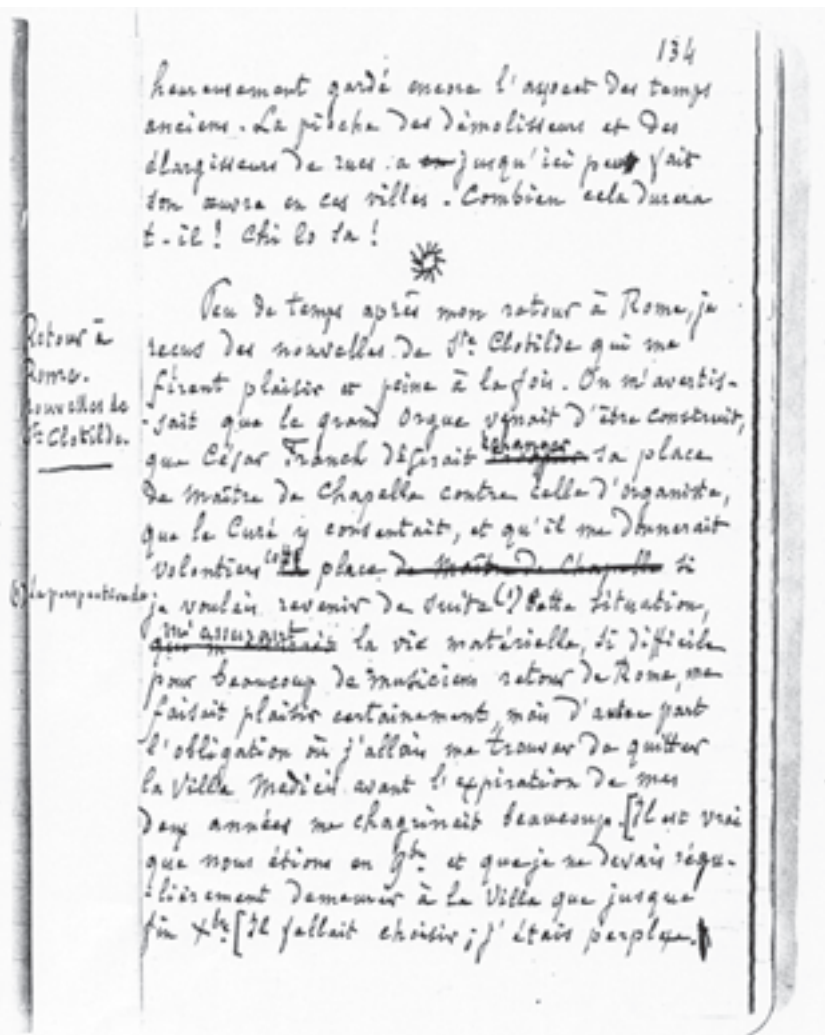 134
heureusement gardé encore l'aspect des temps
anciens. La pioche des démolisseurs et des
élargisseurs de rues a en jusqu'ici peu fait
son œuvre en ces villes. Combien cela durera
t-il! Chi lo sa!
Peu de temps après mon retour à Rome, je
reçus des nouvelles de Ste Clotilde qui me
firent plaisir et peine à la fois. On m'avertis-
-sait que le grand Orgue venait d'être construit,
que César Franck désirait échanger sa place
de maître de Chapelle contre celle d'organiste,
que le Curé y consentait, et qu'il me donnerait
volontiers cette place de Maître de Chapelle si
je voulais revenir de suite (1) Cette situation,
m'assurant la vie matérielle, si difficile
pour beaucoup de musiciens retour de Rome, me
faisait plaisir certainement, mais d'autre part
l'obligation où j'allais me trouver de quitter
la Villa Medicis avant l'expiration de mes
deux années me chagrinait beaucoup. [Il est vrai
que nous étions en 9bre et que je ne devais régu-
-lièrement demeurer à la Villa que jusque
fin Xbre [Il fallait choisir; j'étais perplexe.
Retour à
Rome.
Nouvelles de
Ste Clotilde.
(1) La perspective de